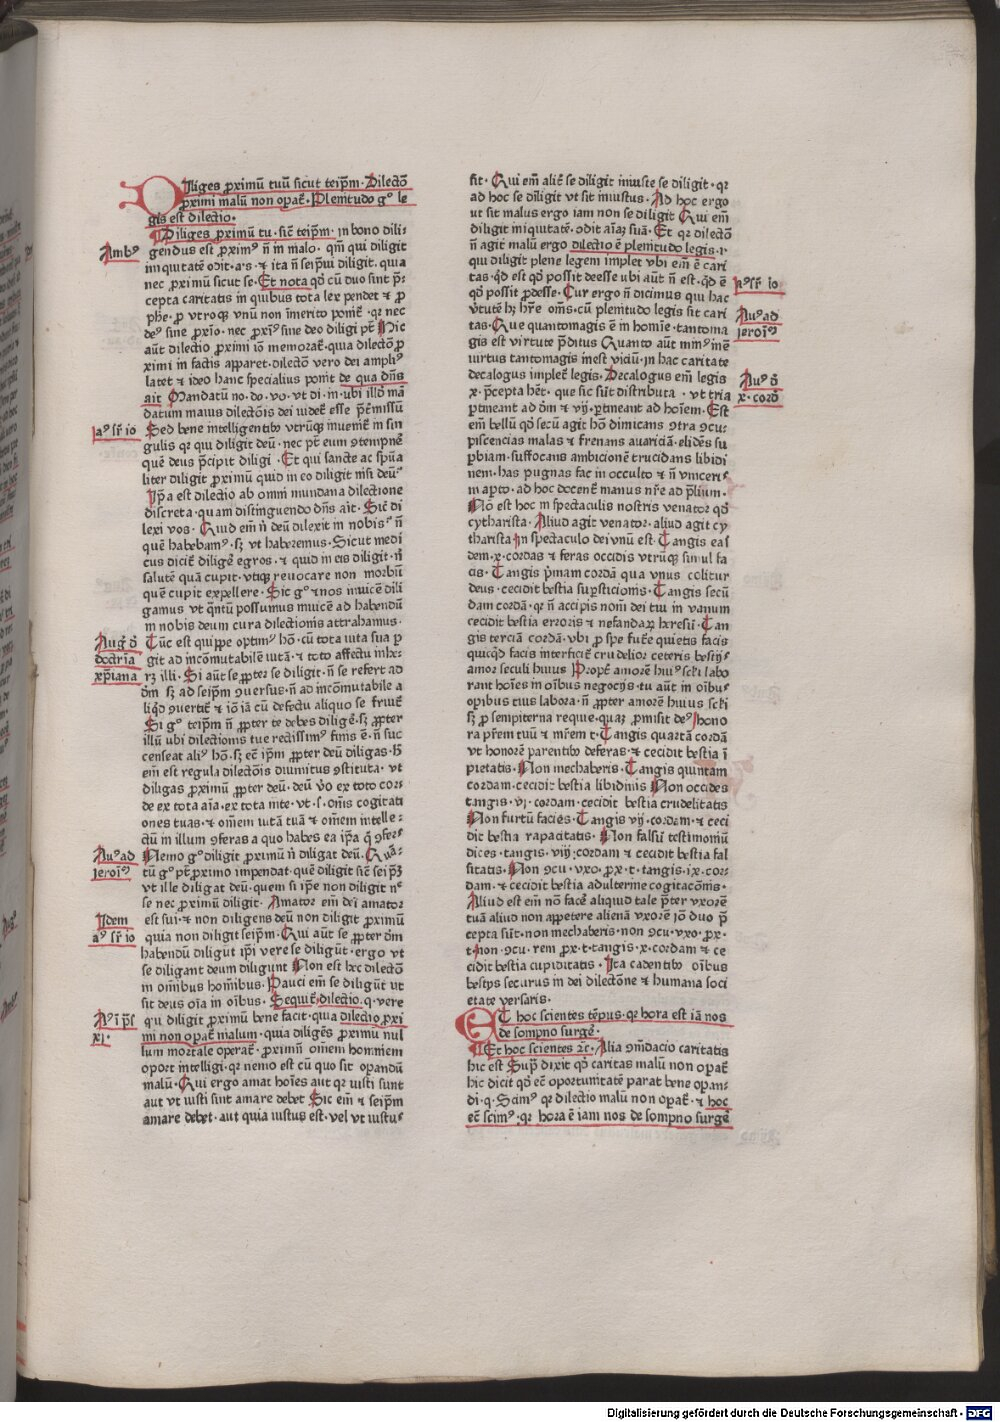 Diliges ꝓximū tuū sicut teip̄m· Dilectō
ꝓximi malū non opat᷑· Plenitudo gͦ le
gis est dilectio·
Diliges ꝓximū tu· sic̄ teip̄m· in bono dili-
Ambꝰ
gendus est ꝓximꝰ n̄ in malo· qm̄ qui diligit
iniquitatē odit· a·s· ⁊ ita n̄ seip̄ui diligit· quia
nec ꝓximū sicut se· Et nota qͦ cū duo sint p̄-
cepta caritatis in quibus tota lex pendet ⁊ ꝓ
phe· ꝓ vtroqꝫ vnū non īmerito ponit᷑· qr nec
deꝰ sine ꝓxīo· nec ꝓxīꝰ sine deo diligi pt̄ Hic
aūt dilectio ꝓximi iō memorat᷑· quia dilectō ꝓ
ximi in factis apparet· dilectō vero dei ampliꝰ
latet ⁊ ideo hanc specialius ponit de qua dn̄s
ait Mandatū no· do· vo· vt di· in· ubi illd̄ mā
datum maius dilectōis dei videt᷑ esse p̄t᷑missū
aꝰ sr̄ io
Sed bene intelligentibꝰ vtrūqꝫ inuenit᷑ in sin
gulis qr qui diligit deū· nec pt̄ eum ꝯtempnē
quē deus p̄cipit diligi· Et qui sancte ac spūa
liter diligit ꝓximū quid in eo diligit nisi deū
Ip̄a est dilectio ab omni mundana dilectione
discreta· quam distinguendo dn̄s ait· Sic̄ di
lexi vos· Quid em̄ n̄ deū dilexit in nobis n̄
quē habebamꝰ· sꝫ vt haberemus· Sicut medi
cus dicit᷑ diligē egros· ⁊ quid in eis diligit· n̄
salutē quā cupit· vtiqꝫ reuocare non morbū
quē cupit expellere· Sic gͦ ⁊ nos inuicē dili
gamus vt qn̄tū possumus inuicē ad habendū
in nobis deum cura dilectionis attrahamus·
Aug᷑ ō
doctrīa
xp̄iana
Tūc est quippe optimꝰ hō· cū tota vita sua p
git ad incōmutabilē vitā· ⁊ toto affectu inhe-
rꝫ illi· Si aūt se ꝓpter se diligit· n̄ se refert ad
dm̄ sꝫ ad seip̄m ꝯuersus· n̄ ad incōmutabile a
liqͥd ꝯuertit᷑ ⁊ iō iā cū defectu aliquo se fruit᷑
Si gͦ teip̄m n̄ ꝓpter te debes diligē· sꝫ ꝓpter
illū ubi dilectionis tue rectissimꝰ finis ē· n̄ suc
censeat aliꝰ hō· sꝫ ec̄ ip̄m ꝓpter deū diligas· h̄
em̄ est regula dilectōis diuinitus ꝯstituta· vt
diligas ꝓximū ꝓpter deū· deū v̄o ex toto cor-
de ex tota aīa· ex tota mte· vt· s· om̄s cogitati
ones tuas· ⁊ om̄em vitā tuā ⁊ om̄em intelle-
ctū in illum ꝯferas a quo habes ea ip̄a q̄ ꝯfersꝰ
Auꝰ ad
Ieroīꝰ
Nemo gͦ diligit ꝓximū n̄ diligat deū· Quā-
tū gͦ pt̄ ꝓximo impendat· quē diligit sic̄ seip̄ꝫ
vt ille diligat deū· quem si ip̄e non diligit nͨ
se nec ꝓximū diligit· Amator em̄ dei amator
Idem
aꝰ sr̄ io
est sui· ⁊ non diligens deū non diligit ꝓximū
quia non diligit seip̄m· Qui aūt se ꝓpter dm̄
habendū diligūt ip̄i vere se diligūt· ergo vt
se diligant deum diligunt Non est hec dilectō
in om̄ibus hom̄ibus· Pauci em̄ se diligūt vt
sit deus oīa in oībus· Sequit᷑· dilectio· q· vere
Aꝰ ī ps̄
xj·
qui diligit ꝓximū bene facit· quia dilectio ꝓxi
mi non opat᷑ malum· quia diligēs ꝓximū nul
lum mortale operat᷑· ꝓximū om̄em hominem
oport intelligi· qr nemo est cū quo sit opandū
malū· Qui ergo amat hoīes aut qr iusti sunt
aut vt iusti sint amare debet Sic em̄ ⁊ seip̄m
amare debet· aut quia iustus est· vel vt iustuꝰ
sit· Qui em̄ alit᷑ se diligit iniuste se diligit· qr
ad hoc se diligit vt sit iniustus· Ad hoc ergo
ut sit malus ergo iam non se diligit Qui em̄
diligit iniquitatē· odit aīaꝫ suā· Et qr dilectō
n̄ agit malū ergo dilectio ē plenitudo legis· r
qui diligit plene legem implet ubi em̄ ē cari
tas· qd̄ est qͦ possit deesse ubi aūt n̄ est· qd̄ ē
aꝰ sr̄ io
qͦ possit ꝓdesse· Cur ergo n̄ dicimus qui hac
v̄tutē hꝫ hr̄e om̄s· cū plenitudo legis sit cari
Auꝰ ad
Ieroīꝰ
tas· Que quantomagis ē in homīe· tantoma
gis est virtute p̄ditus Quanto aūt minꝰ inē
uirtus tantomagis inest viciū· in hac caritate
decalogus implet᷑ legis· Decalogus em̄ legis
Auꝰ ō
x· cord̄
x· p̄cepta hēt· que sic sūt distributa· vt tria
ꝑtineant ad dm̄ ⁊ vij· ꝑtineant ad hoīem· Est
em̄ bellū qͦ secū agit hō dimicans ꝯtra ꝯcu-
piscencias malas ⁊ frenans auariciā· elidēs su
ꝑbiam· suffocans ambicionē trucidans libidi
nem· has pugnas fac in occulto ⁊ n̄ vinceris
in apto· ad hoc docent᷑ manus nr̄e ad p̄lium·
Nō est hoc in spectaculis nostris venator qͦ
cytharista· Aliud agit venator· aliud agit cy
tharista In spectaculo dei vnū est· Tangis eas
dem· x· cordas ⁊ feras occidis vtrūqꝫ simul fa
cis· Tangis p̄mam cordā qua vnus colitur
deus· cecidit bestia suꝑsticionis· Tangis secū
dam cordā· qr n̄ accipis nom̄ dei tui in vanum
cecidit bestia erroris ⁊ nefandaꝝ heresiū· Tan
gis terciā cordā· vbi ꝓ spe fut᷑e quietis facis
quicqͥd facis interficit᷑ crudelior ceteris bestijs
amor seculi huius Propt᷑ amorē huiꝰ scłi labo
rant hoīes in oībus negocijs· tu aūt in oībuꝰ
opibus tuis labora· n̄ ꝓpter amorē huius scłi
sꝫ ꝓ sempiterna requie· quaꝫ ꝓmisit deꝰ Hono
ra pr̄em tuū ⁊ mr̄em t· Tangis quartā cordā
vt honorē parentibꝰ deferas· ⁊ cecidit bestia ī
pietatis· Non mechaberis· Tangis quintam
cordam· cecidit bestia libidinis Non occides
tangis· vj· cordam· cecidit bestia crudelitatis
Non furtū facies· Tangis vij· cordam· ⁊ ceci
dit bestia rapacitatis· Non falsū testimoniū
dices· tangis· viij· cordam ⁊ cecidit bestia fal
sitatis· Non ꝯcu· vxo· ꝓx· t· tangis· ix· cor-
dam· ⁊ cecidit bestia adulterine cogitacōnis·
Aliud est em̄ nō facē aliquid tale p̄ter vxorē
tuā aliud non appetere alienā vxorē iō duo p̄
cepta sūt· non mechaberis· non ꝯcu· vxo· ꝓx·
t· Non· ꝯcu· rem ꝓx· t· tangis· x· cordam ⁊ ce
cidit bestia cupiditatis· Ita cadentibꝰ oībus
bestijs securus in dei dilectōne ⁊ humana soci
etate versaris·
ET hoc scientes tēpus· qr hora est iā nos
de sompno surgē·
Et hoc scientes ⁊c̄· Alia ꝯmēdacio caritatis
hic est Sup̄ dixit qͦ caritas malū non opat᷑
hic dicit qͦ ec̄ oportunitatē parat bene opan-
di· q· Scimꝰ qr dilectio malū non opat᷑· ⁊ hoc
ec̄ scimꝰ· qr hora ē iam nos de sompno surgē
Digitalisierung gefördert durch die Deutsche Forschungsgemeinschaft - DFG